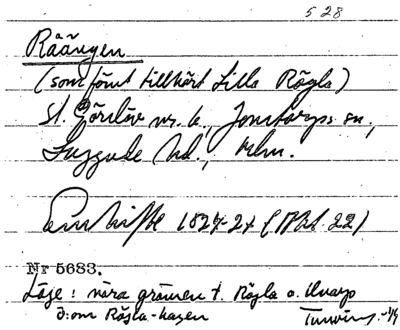 528
Råängen
(som förut tillhört Lilla Rögla)
St. Görslöv nr. 6, Jonstorps sn,
Luggude hd., Mlm.
Enskifte 1824-27 (Akt 22)
Nr 5683.
Läge: nära gränsen t. Rögla o.
ö. om Rögla-hagen